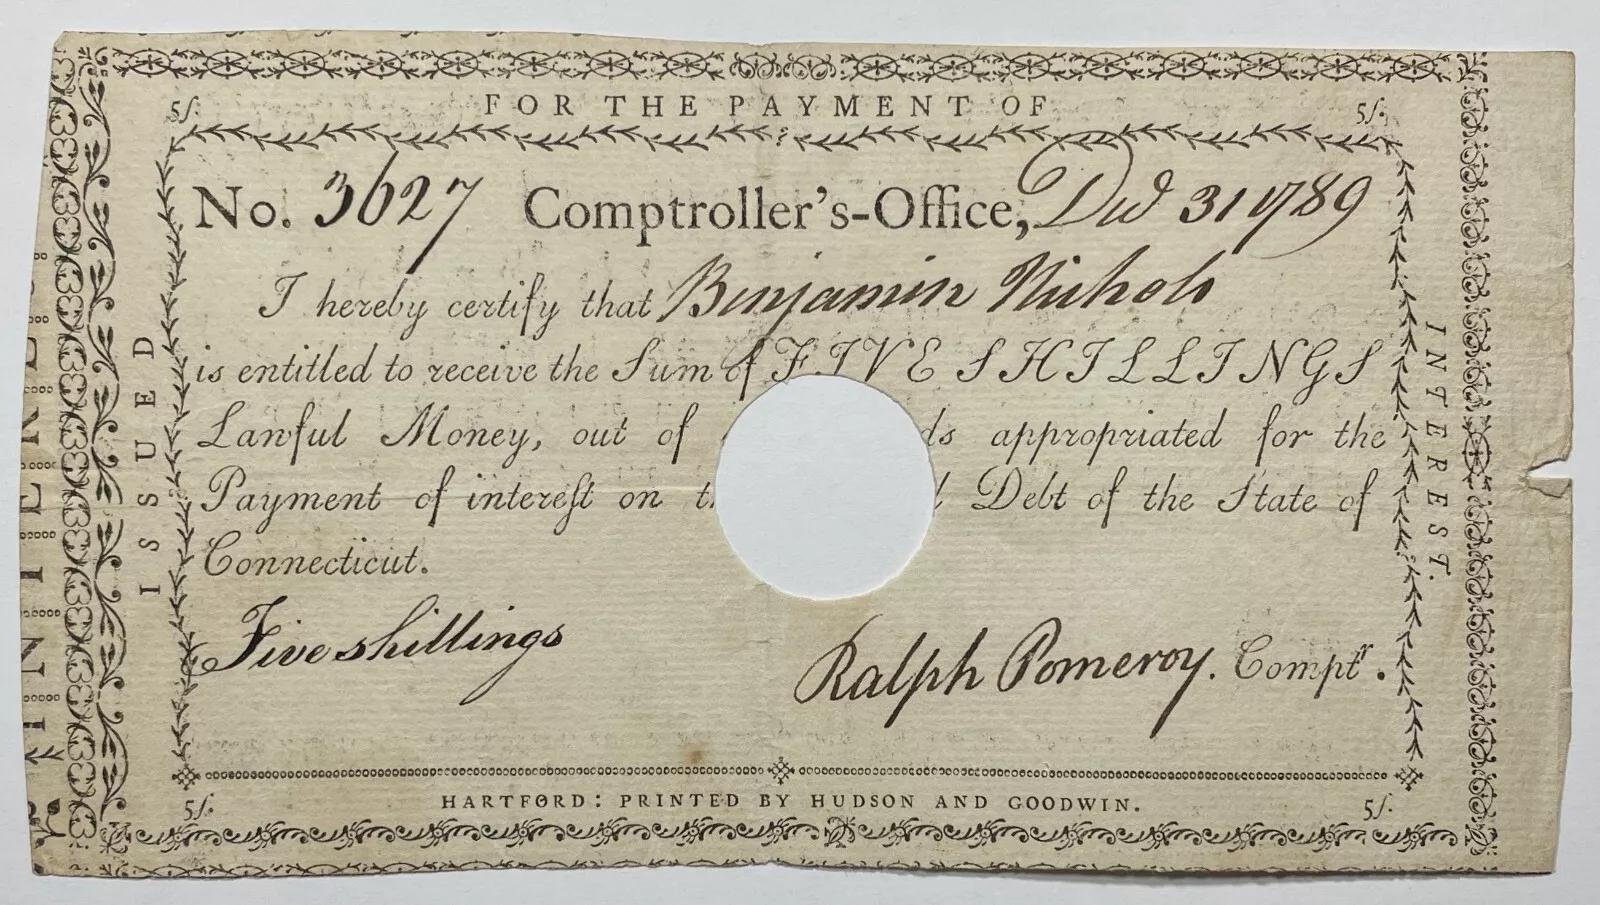 5/.
FOR THE PAYMENT OF
5/.
No. 3627 Comptroller's-Office, Decd 31 1789
I hereby certify that Benjamin Nichols
is entitled to receive the Sum of FIVE SHILLINGS
Lawful Money, out of ds appropriated for the
Payment of interest on Debt of the State of
Connecticut.
Five shillings
Ralph Pomeroy. Comptr.
ISSUED
INTEREST.
5/.
HARTFORD: PRINTED BY HUDSON AND GOODWIN.
5/.